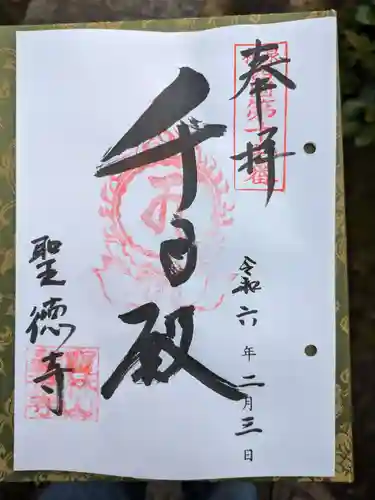 奉拝
令和六年二月三日
千日殿
聖徳寺